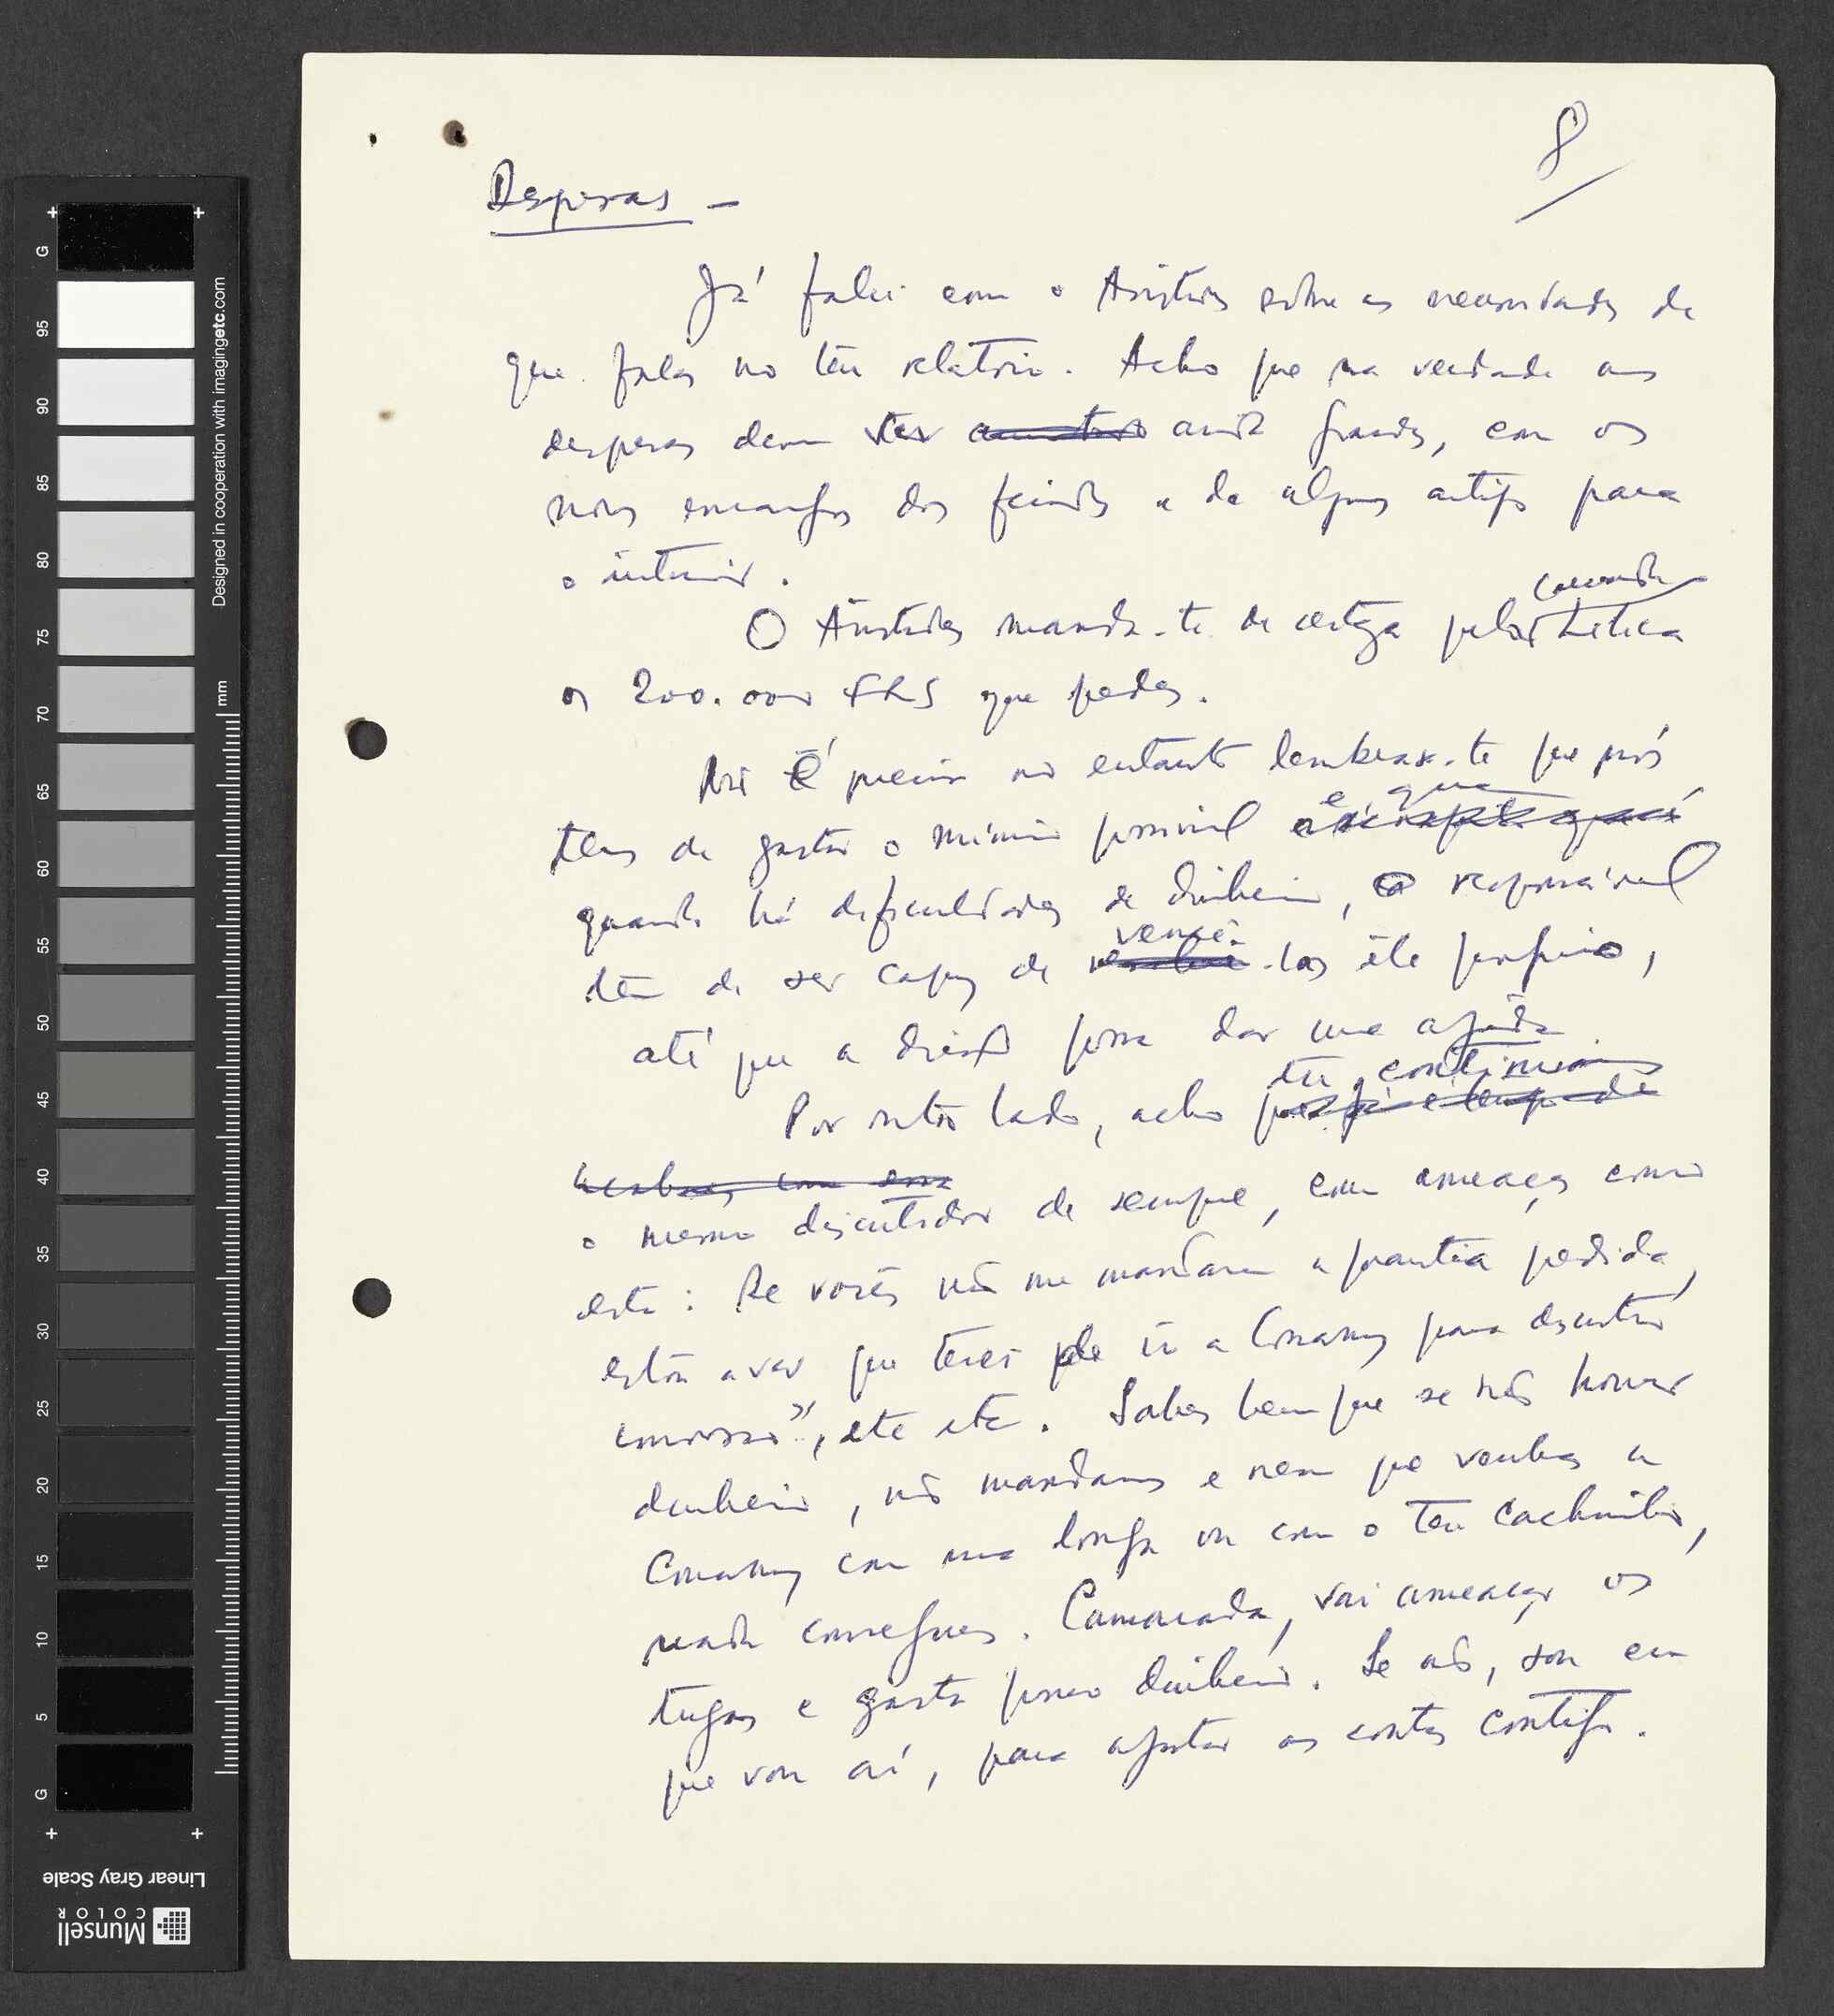 8
Despesas –
Já falei com o Aristides sobre as necessidades de
que falas no teu relatório. Acho que na verdade as
despesas devem ser ainda grandes, com os
novos encargos dos feridos e de alguns artigos para
o interior.
O Aristides manda-te de certeza pelo camarada
os 200.000 FRS que pedes.
É preciso no entanto lembrar-te que nós
temos de gastar o mínimo possível e que
quando há dificuldades de dinheiro, o responsável
tem de ser capaz de vencê-las êle próprio,
até que a direcção possa dar uma ajuda
Por outro lado, acho que tu continuas
acabares com essa
o mesmo discutidor de sempre, com ameaças como
esta: Se vocês não me mandarem a quantia pedida,
estou a ver que terei de ir a Conakry para discutir
connosco", etc etc. Sabes bem que se não houver
dinheiro, não mandamos e nem que venhas a
Conakry com uma longa ou com o teu cachimbo,
nada consegues. Camarada, vai ameaçar os
tugas e gasta pouco dinheiro. Se não, sou eu
que vou aí, para ajustar as contas contigo.
G
95
90
85
80
75
70
65
60
55
50
45
40
35
30
25
20
15
10
5
G
mm
Designed in cooperation with imagingetc.com
Linear Gray Scale
Munsell
COLOR